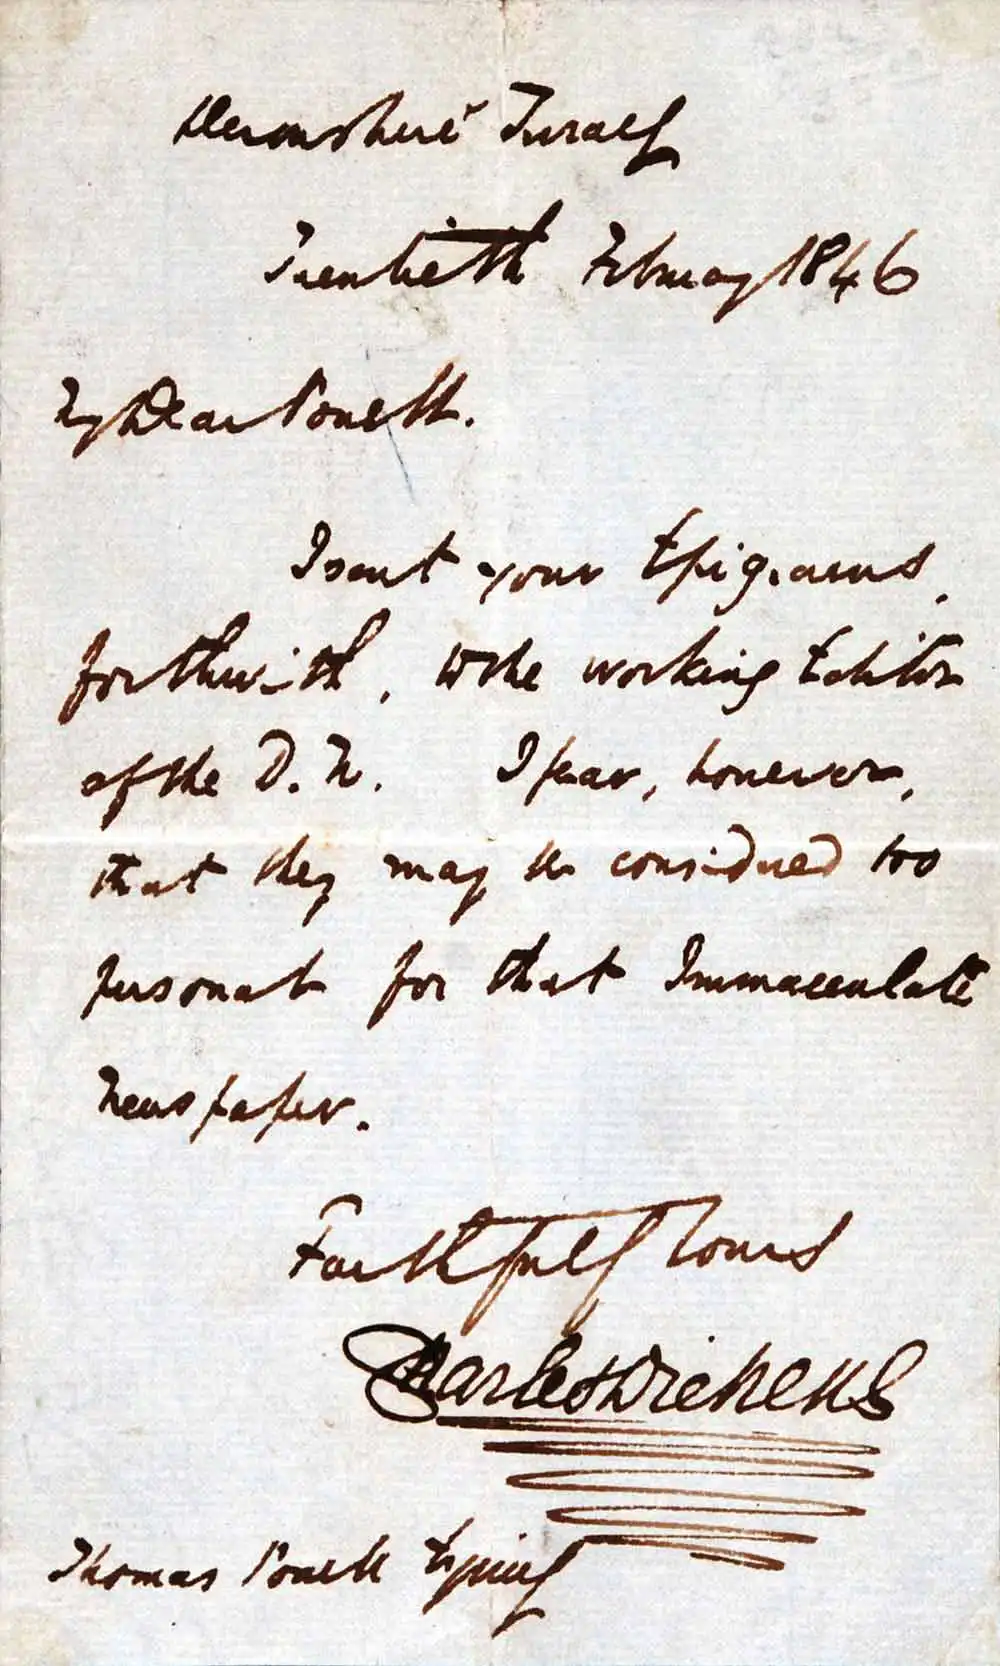 Devonshire Terrace
Twentieth February 1846
My Dear Powell.
I sent your Epigrams,
forthwith, to the working Editor
of the D.N. I fear, however,
that they may be considered too
personal for that Immaculate
Newspaper.
Faithfully Yours
Charles Dickens
Thomas Powell Esquire